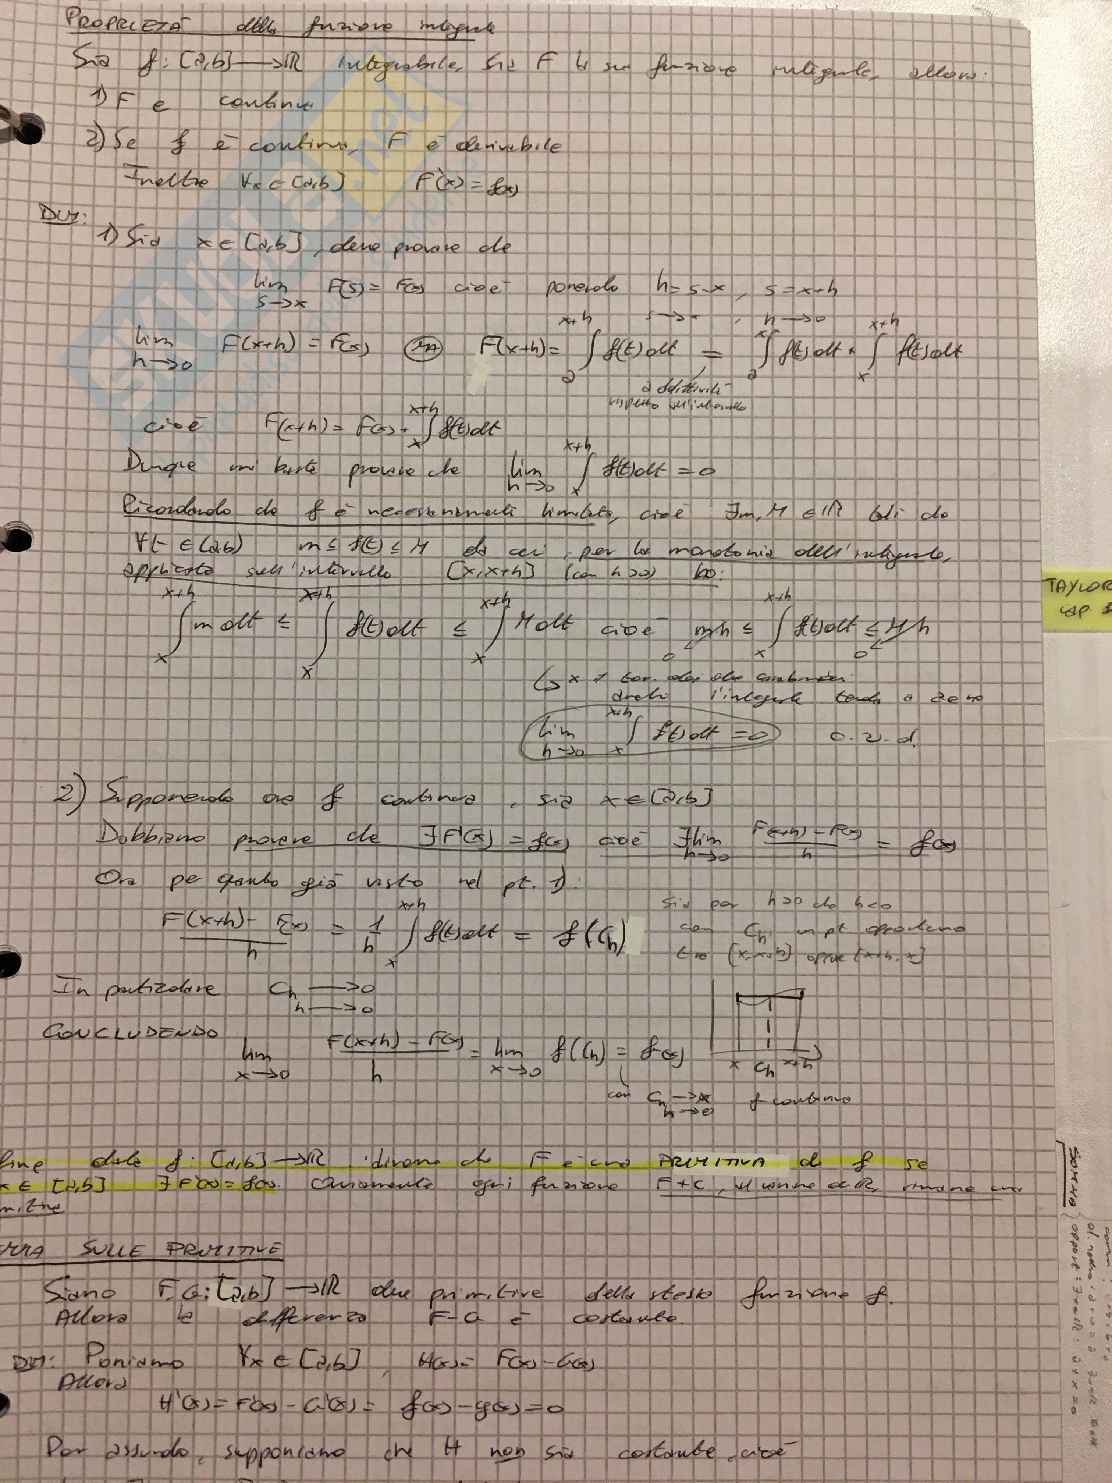 PROPRIETÀ della funzione integrale
Sia f: [a,b] → ℝ integrabile, sia F la sua funzione integrale, allora:
1) F è continua
2) Se f è continua, F è derivabile
Inoltre ∀x ∈ [a,b] F'(x) = f(x)
DIM:
1) Sia x ∈ [a,b], devo provare che
lim s→x F(s) = F(x) cioè ponendo h = s-x, s = x+h
s→x, h→0
lim h→0 F(x+h) = F(x) MA F(x+h) = ∫_a^{x+h} f(t)dt = ∫_a^x f(t)dt + ∫_x^{x+h} f(t)dt
additività
rispetto all'intervallo
cioè F(x+h) = F(x) + ∫_x^{x+h} f(t)dt
Dunque mi basta provare che lim h→0 ∫_x^{x+h} f(t)dt = 0
Ricordando che f è necessariamente limitata, cioè ∃m, M ∈ ℝ tali che
∀t ∈ (a,b) m ≤ f(t) ≤ M da cui, per la monotonia dell'integrale,
applicata sull'intervallo [x, x+h] (con h>0) ho:
∫_x^{x+h} m dt ≤ ∫_x^{x+h} f(t)dt ≤ ∫_x^{x+h} M dt cioè mh ≤ ∫_x^{x+h} f(t)dt ≤ Mh
0 0
↳ x dei due carabinieri
anche l'integrale tende a zero
lim h→0 ∫_x^{x+h} f(t)dt = 0 c.v.d.
2) Supponendo ora f continua, sia x ∈ [a,b]
Dobbiamo provare che ∃F'(x) = f(x) cioè ∃ lim h→0 (F(x+h) - F(x))/h = f(x)
Ora per quanto già visto nel pt. 1):
(F(x+h) - F(x))/h = 1/h ∫_x^{x+h} f(t)dt = f(c_h)
sia per h>0 che h<0
con c_h un pt opportuno
tra [x, x+h] oppure [x+h, x]
In particolare c_h → 0
h → 0
CONCLUDENDO
lim x→0 (F(x+h) - F(x))/h = lim x→0 f(c_h) = f(x)
x c_h x+h
con c_h → x
h → 0 f continua
data f: [a,b] → ℝ diremo che F è una PRIMITIVA di f se
x ∈ [a,b] ∃F'(x) = f(x). Chiaramente ogni funzione F+C, al variare di ℝ, rimane una
mitiva
SULLE PRIMITIVE
Siano F, G: [a,b] → ℝ due primitive della stessa funzione f.
Allora la differenza F-G è costante.
DIM: Poniamo ∀x ∈ [a,b], H(x) = F(x) - G(x)
Allora
H'(x) = F'(x) - G'(x) = f(x) - g(x) = 0
Per assurdo, supponiamo che H non sia costante, cioè
TAYLOR
CAP
SOMMA
SKUOLA.net